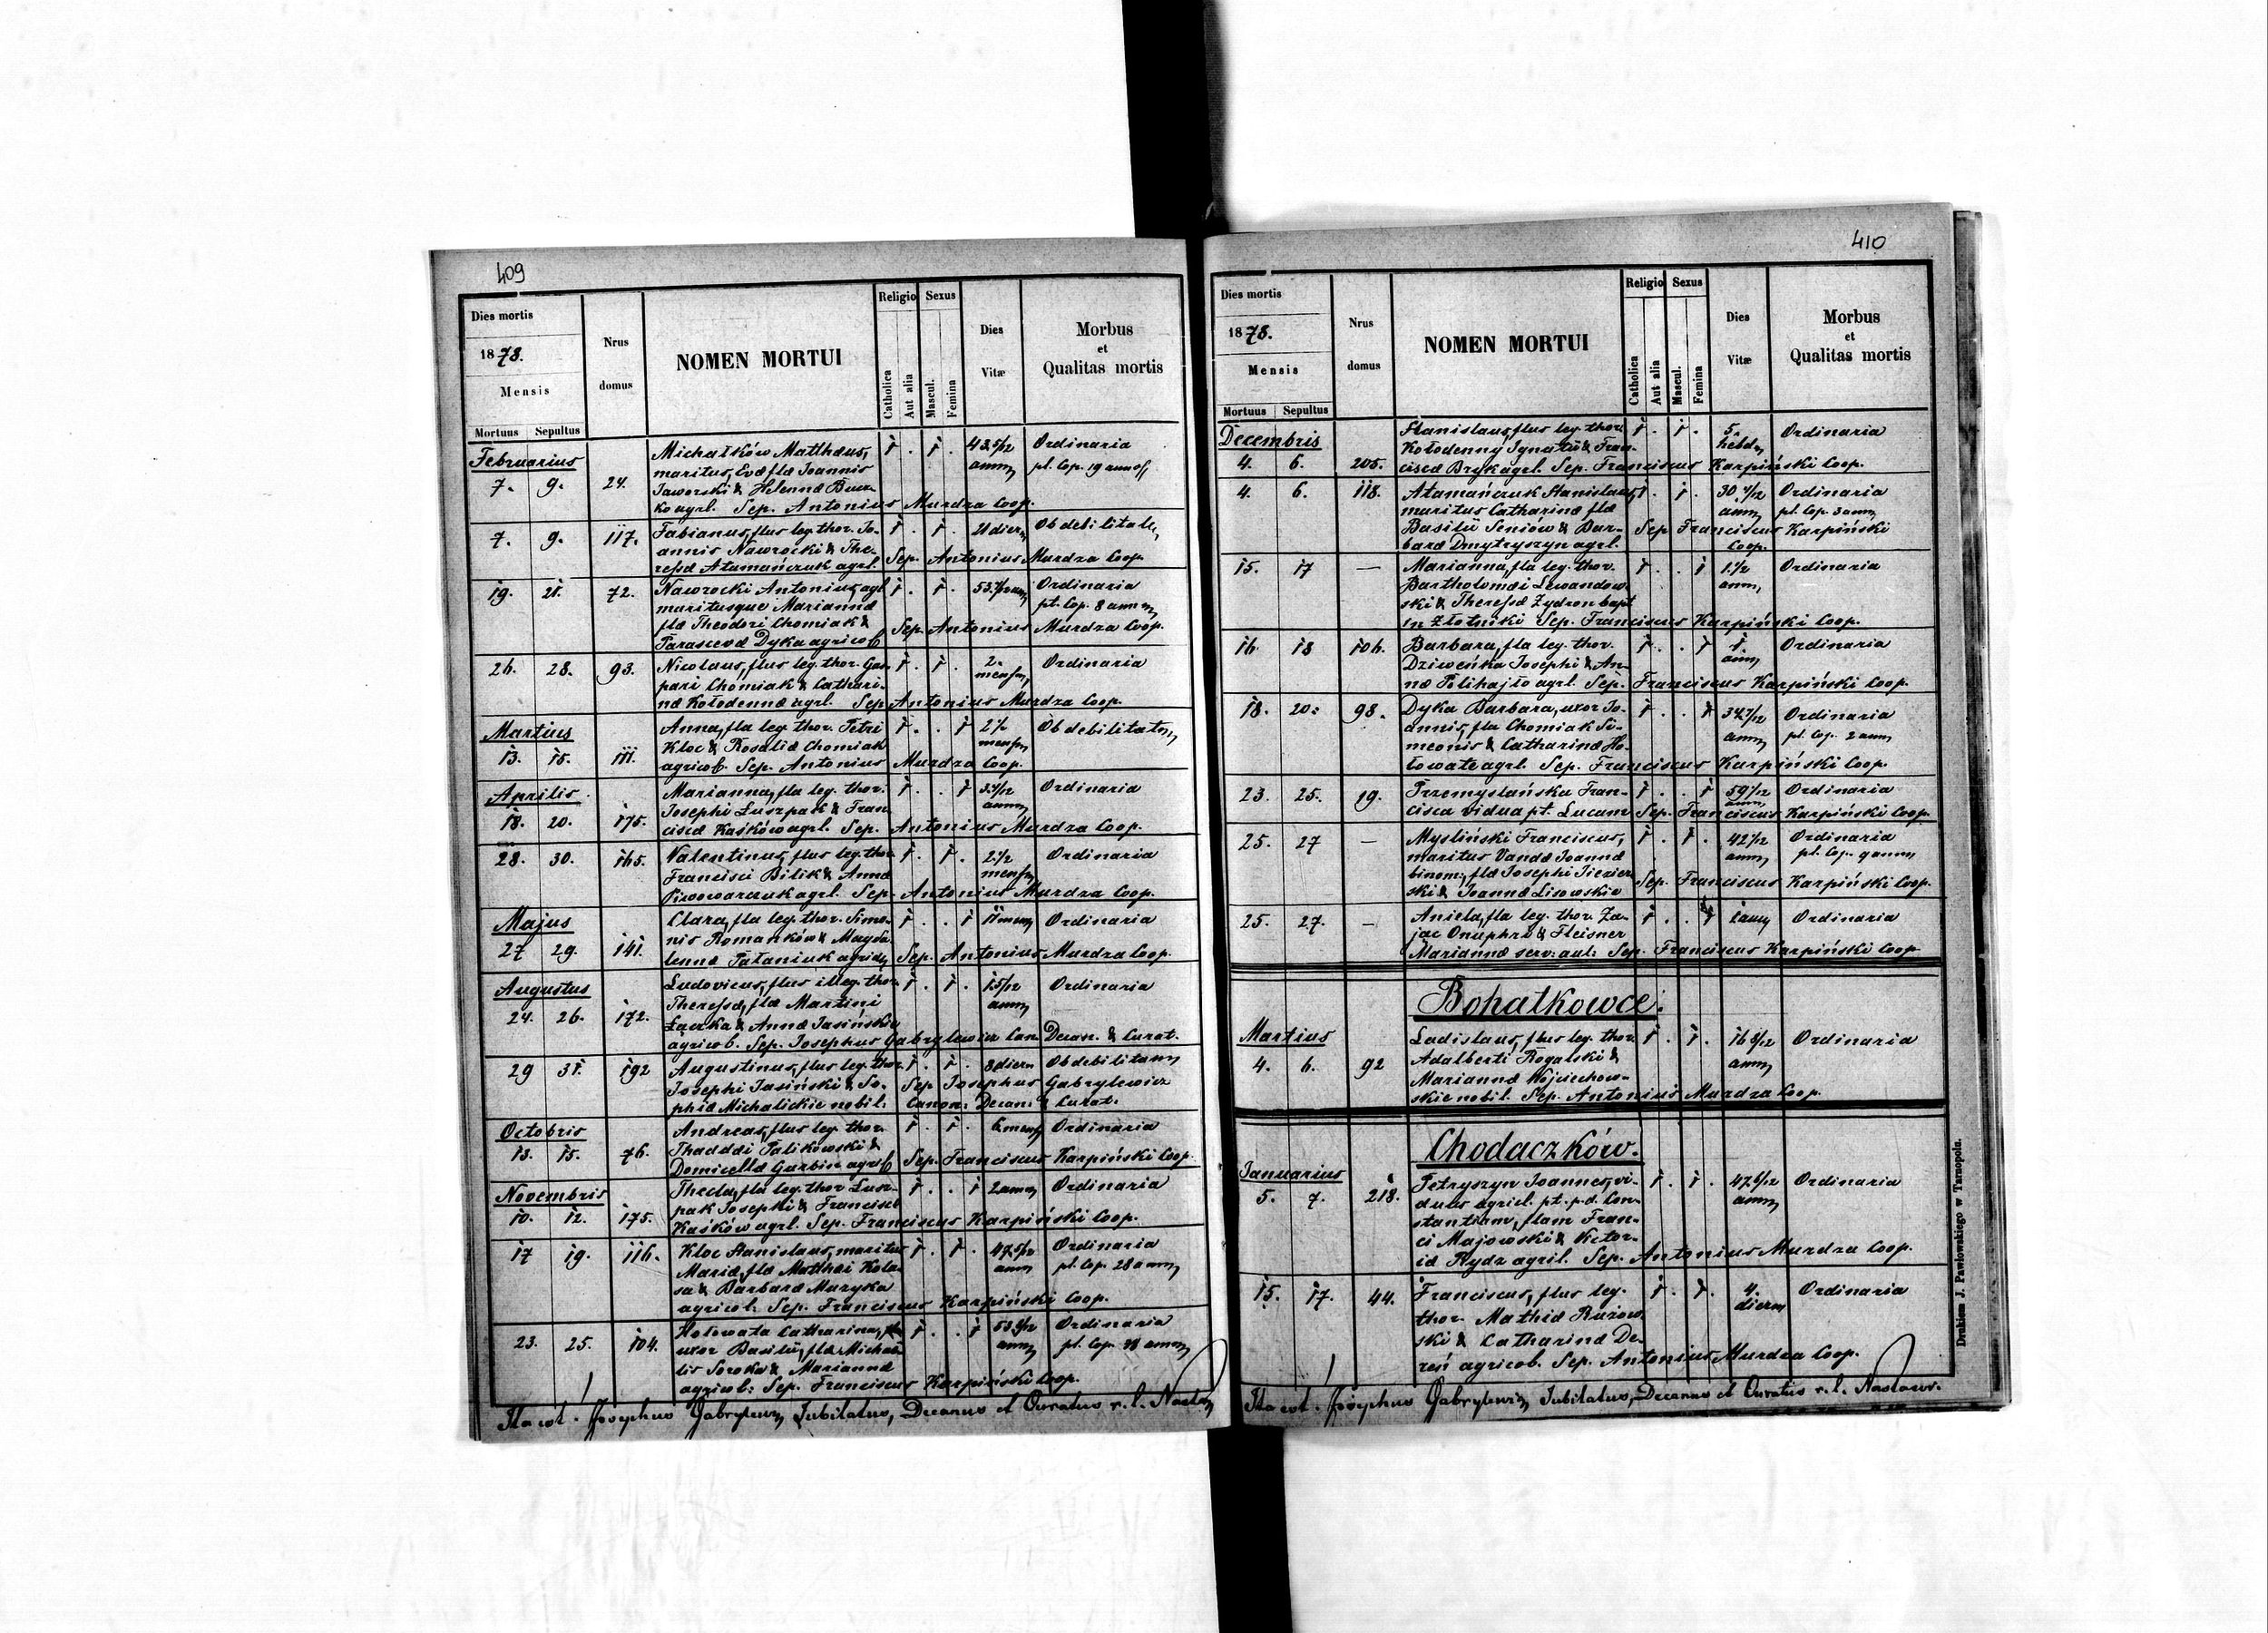 409
Dies mortis
1878.
Mensis
Mortuus Sepultus
Nrus domus
NOMEN MORTUI
Religio Sexus
Catholica
Aut alia
Mascul.
Femina
Dies Vitæ
Morbus
et
Qualitas mortis
Februarius
7. 9. 24.
Michałków Matthæus, 1 . 1 . 43 5/12 Ordinaria
maritus, Evæ flæ Joannis annor pt. Cop. 19 annos
Jaworski & Helennæ
ko agrl. Sep. Antonius Murdza Coop.
7. 9. 117.
Fabianus, flus leg. thor. Jo- 1 . 1 . dierum Ob debilitate
annis Nawrocki & The-
resæ Atamańczuk agrl. Sep. Antonius Murdza Coop.
19. 21. 72.
Nawrocki Antonius, agl 1 . 1 . Ordinaria
maritusque Mariannæ pt. Cop. 8 annos
flæ Theodori Chomiak &
Parascevæ Dyka agricol. Sep. Antonius Murdza Coop.
26. 28. 93.
Nicolaus, flus leg. thor. Gas- 1 . 1 . 2. Ordinaria
pari Chomiak & Cathari- mensium
næ Kołodennæ agrl. Sep. Antonius Murdza Coop.
Martius
13. 15. 111.
Anna, fla leg. thor. Petri 1 . . 1 2 1/2 Ob debilitatem
Kloc & Rosaliæ Chomiak mensium
agricol. Sep. Antonius Murdza Coop.
Aprilis
18. 20. 175.
Marianna, fla leg. thor. 1 . . 1 Ordinaria
Josephi Łuszpak & Fran-
ciscæ Kaśków agrl. Sep. Antonius Murdza Coop.
28. 30. 165.
Valentinus, flus leg. thor. 1 . 1 . 2 1/2 Ordinaria
Francisci Bilik & Annæ mensium
Piwowarczuk agrl. Sep. Antonius Murdza Coop.
Majus
27 29. 141.
Clara, fla leg. thor. Simo- 1 . . 1 11 mensium Ordinaria
nis Romanków & Magda-
lennæ Pałaniuk Sep. Antonius Murdza Coop.
Augustus
24. 26. 172.
Ludovicus, flus illeg. thor. 1 . 1 . 1 5/12 Ordinaria
Theresæ, flæ Martini annor
Łaczka & Annæ Jasińskie
agricol. Sep. Josephus Gabrylewicz Can. Decan. & Curat.
29 31. 192
Augustinus, flus leg. thor. 1 . 1 . 8 dierum Ob debilitatem
Josephi Jasiński & So- Sep. Josephus Gabrylewicz
phiæ Michalickie nobil: Canon: Decan: & Curat:
Octobris
13. 15. 76.
Andreas, flus leg. thor. 1 . 1 . 6 mens Ordinaria
Thaddæi Palikowski &
Domicellæ Gurbin Sep. Franciscus Karpiński Coop.
Novembris
10. 12. 175.
Thecla, fla leg. thor Łusz- 1 . . 1 2 annor Ordinaria
pak Josephi & Franciscæ
Kaśków agrl. Sep. Franciscus Karpiński Coop.
17 19. 116.
Kloc Stanislaus, maritus 1 . 1 . 47 5/12 Ordinaria
Mariæ, flæ Matthæi Kola- annor pt. Cop. 28 annor
sa & Barbaræ Muzyka
agricol: Sep. Franciscus Karpiński Coop.
23. 25. 104.
Hołowata Catharina, 1 . . 1 Ordinaria
uxor Basilii, flæ Michae- annor pt. Cop. annor
lis Soroka & Mariannæ
agricol: Sep. Franciscus Karpiński Coop.
Josephus Gabrylewicz Jubilatus, Decanus et Curatus r. l.
410
Dies mortis
1878.
Mensis
Mortuus Sepultus
Nrus domus
NOMEN MORTUI
Religio Sexus
Catholica
Aut alia
Mascul.
Femina
Dies Vitæ
Morbus
et
Qualitas mortis
Decembris
4. 6. 205.
Stanislaus, flus leg. thor. 1 . 1 . 5. Ordinaria
Kołodenny Ignatii & Fran- hebd.
ciscæ Bryk agrl. Sep. Franciscus Karpiński Coop.
4. 6. 118.
Atamańczuk Stanislaus, 1 . 1 . Ordinaria
maritus Catharinæ flæ annor pt. Cop. 3 annor
Basilii Seniów & Bar- Sep. Franciscus Karpiński
baræ Dmytryszyn agrl. Coop.
15. 17 —
Marianna, fla leg. thor. 1 . . 1 1 1/2 Ordinaria
Bartholomæi Lewandow- annor
ski & Theresæ Zydron bapt
in Złotniki Sep. Franciscus Karpiński Coop.
16 18 106.
Barbara, fla leg. thor. 1 . . 1 1. Ordinaria
Dziweńka Josephi & An- anni
næ Pelihajło agrl. Sep. Franciscus Karpiński Coop.
18. 20. 98.
Dyka Barbara, uxor Jo- 1 . . 1 Ordinaria
annis, fla Chomiak Si- annor pt. Cop. 2 annor
meonis & Catharinæ Ho-
łowate agrl. Sep. Franciscus Karpiński Coop.
23. 25. 19.
Przemyslańska Fran- 1 . . 1 59 1/12 Ordinaria
cisca vidua pt. Lucam Sep. Franciscus Karpiński Coop.
25. 27 —
Mysliński Franciscus, 1 . 1 . 42 1/12 Ordinaria
maritus Vandæ Joannæ annor pt. Cop. 9 annor
binom: flæ Josephi
ski & Joannæ Lisowskie Sep. Franciscus Karpiński Coop.
25. 27. —
Aniela, fla leg. thor. Za- 1 . . 1 1 anni Ordinaria
jac Onuphri & Fleisner
Mariannæ serv: aul: Sep. Franciscus Karpiński Coop
Bohatkowce.
Martius
4. 6. 92
Ladislaus, flus leg. thor. 1 . 1 . Ordinaria
Adalberti Rogalski & annor
Mariannæ Wojciechow-
skie nobil. Sep. Antonius Murdza Coop.
Chodaczków.
Januarius
5. 7. 218.
Petryszyn Joannes, vi- 1 . 1 . 47 6/12 Ordinaria
duus agricl. pt. p. d. Con- annor
stantiam, flam Fran-
ci Majowski & Victor-
iæ Hydz agril. Sep. Antonius Murdza Coop.
15. 17. 44.
Franciscus, flus leg. 1 . 1 . 4. Ordinaria
thor. Mathiæ dierum
ski & Catharinæ De-
reń agricol. Sep. Antonius Murdza Coop.
Josephus Gabrylewicz Jubilatus, Decanus et Curatus r. l. Nastasow.
Drukiem J. Pawłowskiego w Tarnopolu.